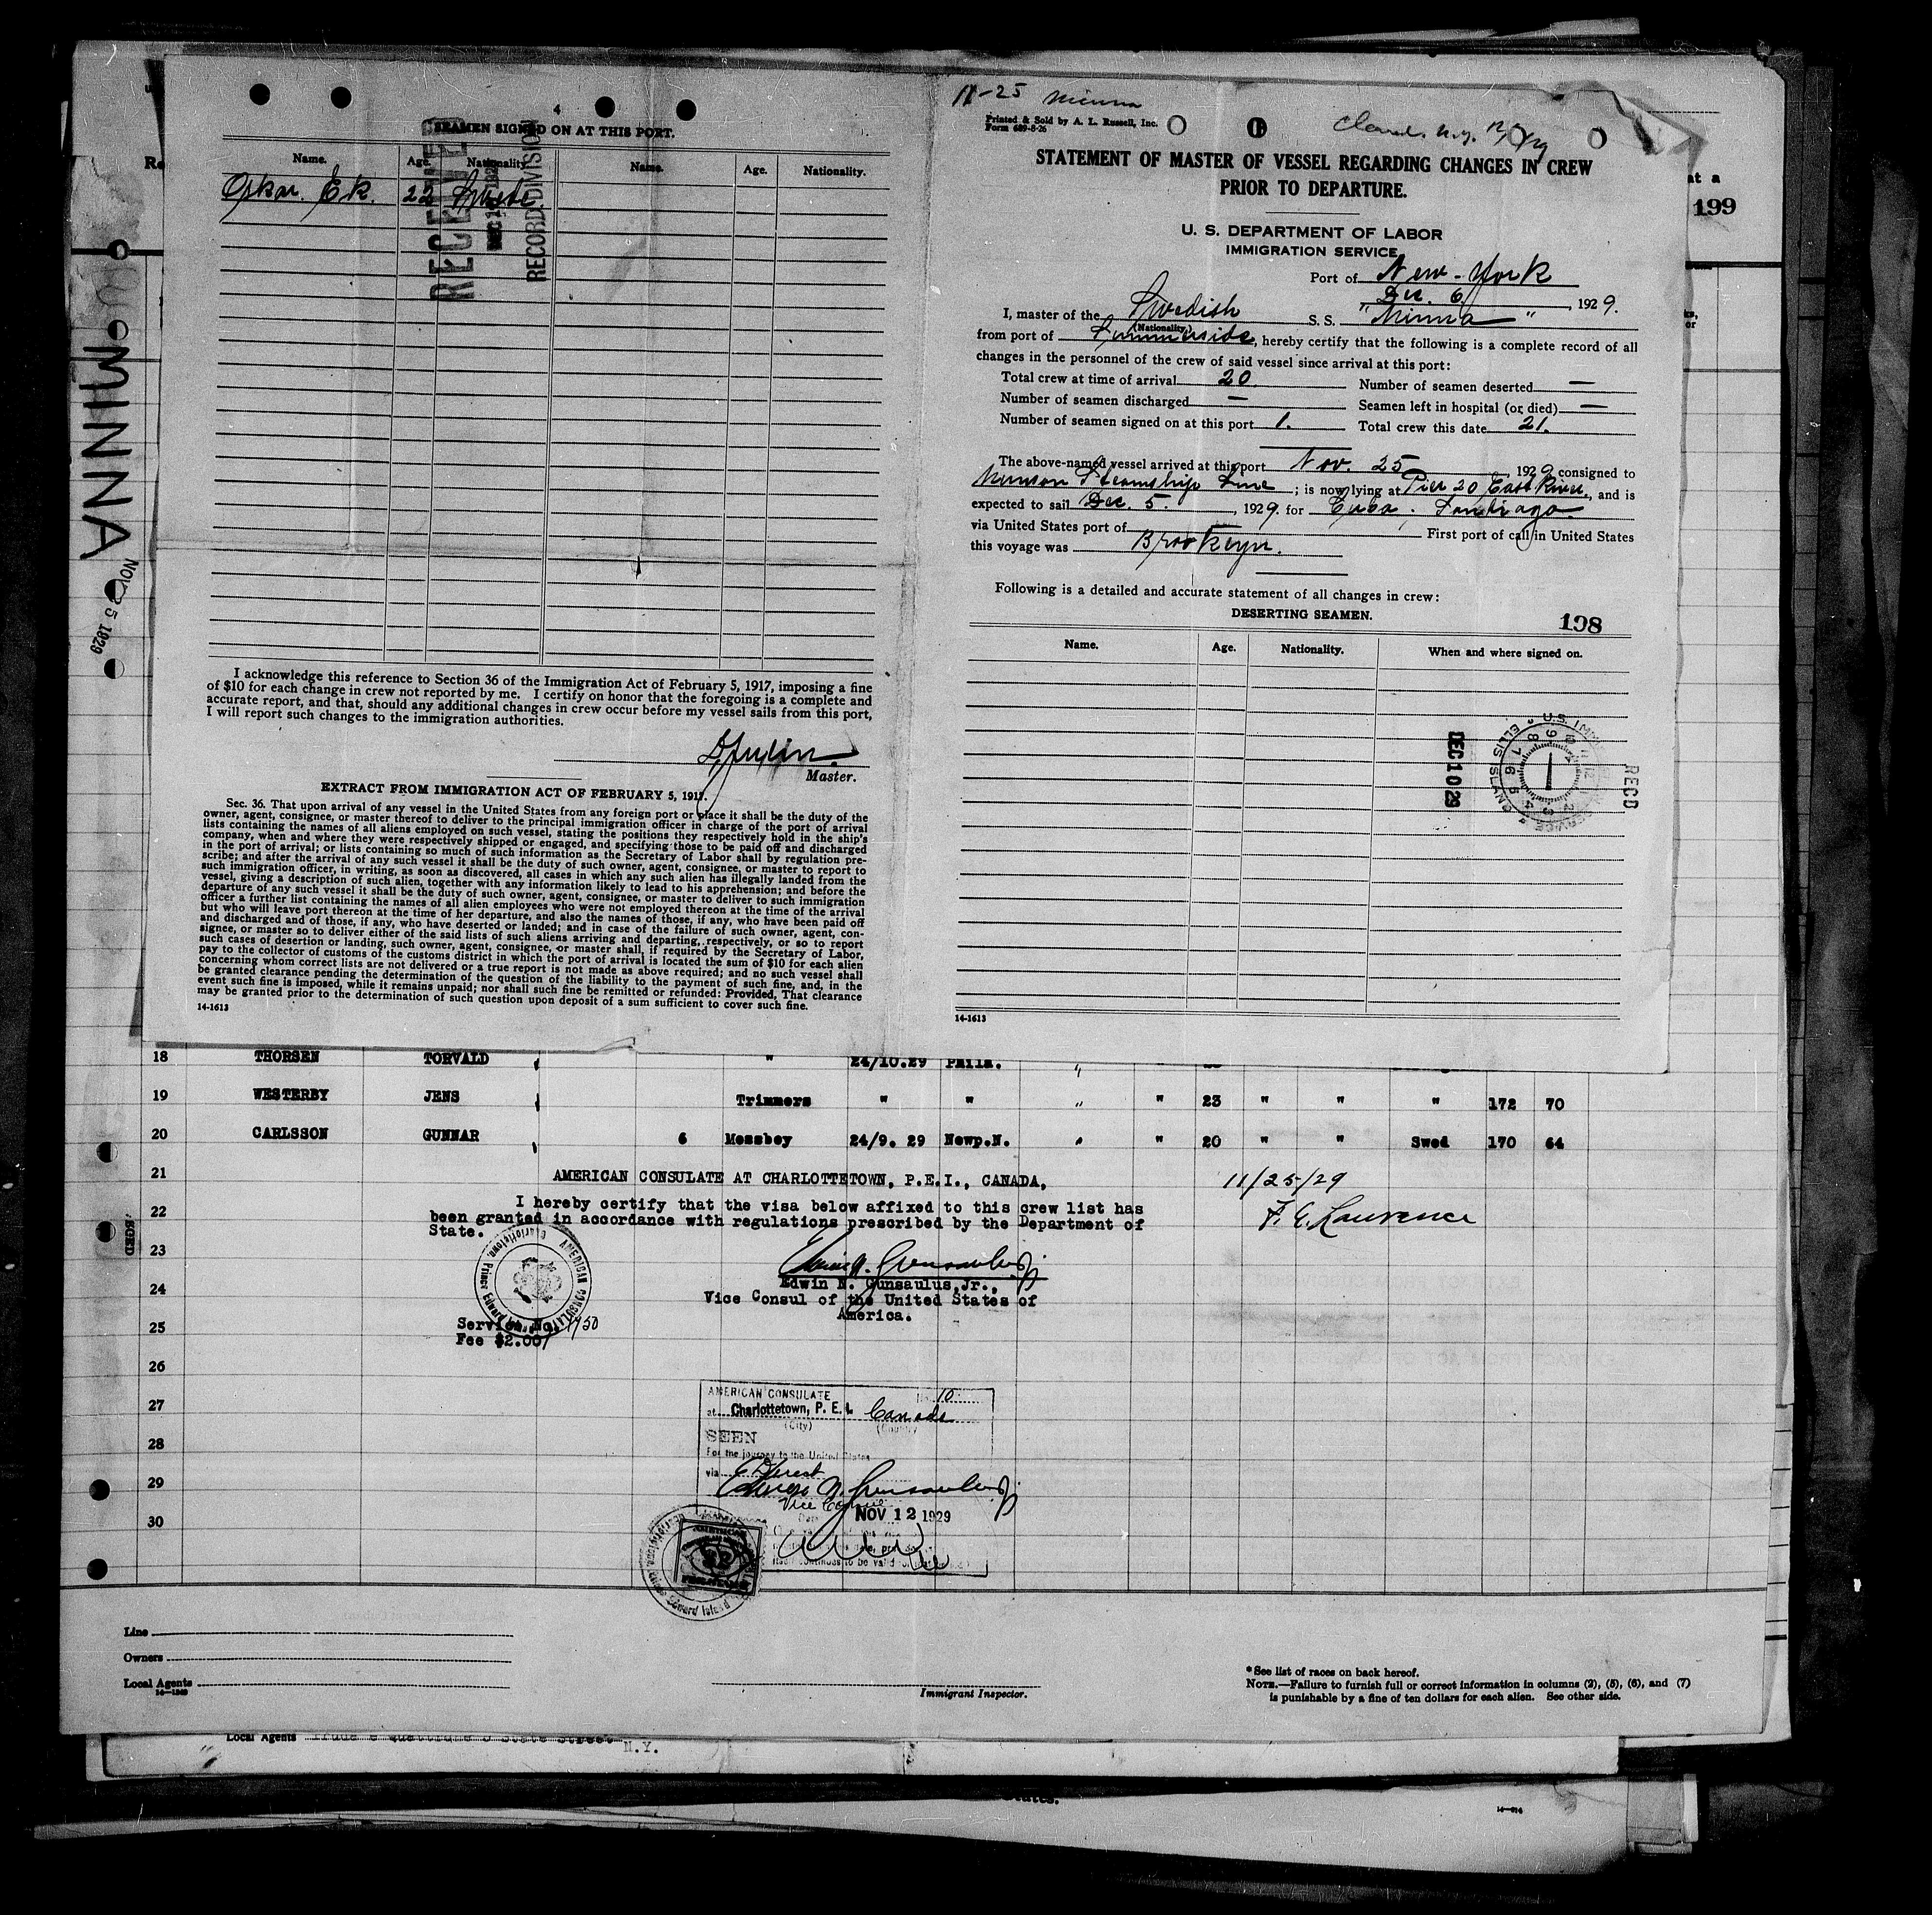 4
SEAMEN SIGNED ON AT THIS PORT.
Name. Age. Nationality. Name. Age. Nationality.
Oskar Ek. 22 Swede.
RECEIVED
RECORD DIVISION
I acknowledge this reference to Section 36 of the Immigration Act of February 5, 1917, imposing a fine
of $10 for each change in crew not reported by me. I certify on honor that the foregoing is a complete and
accurate report, and that, should any additional changes in crew occur before my vessel sails from this port,
I will report such changes to the immigration authorities.
Master.
EXTRACT FROM IMMIGRATION ACT OF FEBRUARY 5, 1917.
Sec. 36. That upon arrival of any vessel in the United States from any foreign port or place it shall be the duty of the
owner, agent, consignee, or master thereof to deliver to the principal immigration officer in charge of the port of arrival
lists containing the names of all aliens employed on such vessel, stating the positions they respectively hold in the ship's
company, when and where they were respectively shipped or engaged, and specifying those to be paid off and discharged
in the port of arrival; or lists containing so much of such information as the Secretary of Labor shall by regulation pre-
scribe; and after the arrival of any such vessel it shall be the duty of such owner, agent, consignee, or master to report to
such immigration officer, in writing, as soon as discovered, all cases in which any such alien has illegally landed from the
vessel, giving a description of such alien, together with any information likely to lead to his apprehension; and before the
departure of any such vessel it shall be the duty of such owner, agent, consignee, or master to deliver to such immigration
officer a further list containing the names of all alien employees who were not employed thereon at the time of the arrival
but who will leave port thereon at the time of her departure, and also the names of those, if any, who have been paid off
and discharged and of those, if any, who have deserted or landed; and in case of the failure of such owner, agent, con-
signee, or master so to deliver either of the said lists of such aliens arriving and departing, respectively, or so to report
such cases of desertion or landing, such owner, agent, consignee, or master shall, if required by the Secretary of Labor,
pay to the collector of customs of the customs district in which the port of arrival is located the sum of $10 for each alien
concerning whom correct lists are not delivered or a true report is not made as above required; and no such vessel shall
be granted clearance pending the determination of the question of the liability to the payment of such fine, and, in the
event such fine is imposed, while it remains unpaid; nor shall such fine be remitted or refunded: Provided, That clearance
may be granted prior to the determination of such question upon deposit of a sum sufficient to cover such fine.
14-1613
11-25 Minna
Printed & Sold by A. L. Russell, Inc.
Form 689-8-26
STATEMENT OF MASTER OF VESSEL REGARDING CHANGES IN CREW
PRIOR TO DEPARTURE.
U. S. DEPARTMENT OF LABOR
IMMIGRATION SERVICE
Port of New-York
Dec. 6, 1929.
I, master of the Swedish S. S. "Minna"
(Nationality)
from port of Summerside, hereby certify that the following is a complete record of all
changes in the personnel of the crew of said vessel since arrival at this port:
Total crew at time of arrival 20 Number of seamen deserted —
Number of seamen discharged — Seamen left in hospital (or died) —
Number of seamen signed on at this port 1. Total crew this date 21.
The above-named vessel arrived at this port Nov. 25, 1929 consigned to
Munson Steamship Line; is now lying at Pier 20 East River, and is
expected to sail Dec. 5., 1929. for Cuba, Santiago
via United States port of First port of call in United States
this voyage was Brooklyn.
Following is a detailed and accurate statement of all changes in crew:
DESERTING SEAMEN.
198
Name. Age. Nationality. When and where signed on.
DEC 10 29
RECD
U.S. IMM
SERVICE
ELLIS ISLAND
14-1613
at a
199
Re
MINNA
NOV 25 1929
18 THORSEN TORVALD " 24/10.29 Phila. " "
19 WESTERBY JENS Trimmers " " " " 23 " " " 172 70
20 CARLSSON GUNNAR 6 Messboy 24/9. 29 Newp.N. " " 20 " " Swed 170 64
21
AMERICAN CONSULATE AT CHARLOTTETOWN, P.E.I., CANADA,
11/25/29
22
I hereby certify that the visa below affixed to this crew list has
been granted in accordance with regulations prescribed by the Department of
State.
F. E. Lawrence
23
24
Edwin N. Gunsaulus, Jr.,
Vice Consul of the United States of
America.
AMERICAN CONSULATE
Charlottetown, Prince Edward Island
25
Service No. 1750
Fee $2.00
26
27
AMERICAN CONSULATE No. 10
at Charlottetown, P. E. I. Canada
(City) (Country)
28
SEEN
For the journey to the United States
29
via Direct
Edwin N. Gunsaulus Jr.
Vice Consul
30
Date NOV 12 1929
Edward Island
Line
Owners
Local Agents
14—1240
Immigrant Inspector.
*See list of races on back hereof.
NOTE.—Failure to furnish full or correct information in columns (2), (5), (6), and (7)
is punishable by a fine of ten dollars for each alien. See other side.
Local Agents State Street N.Y.